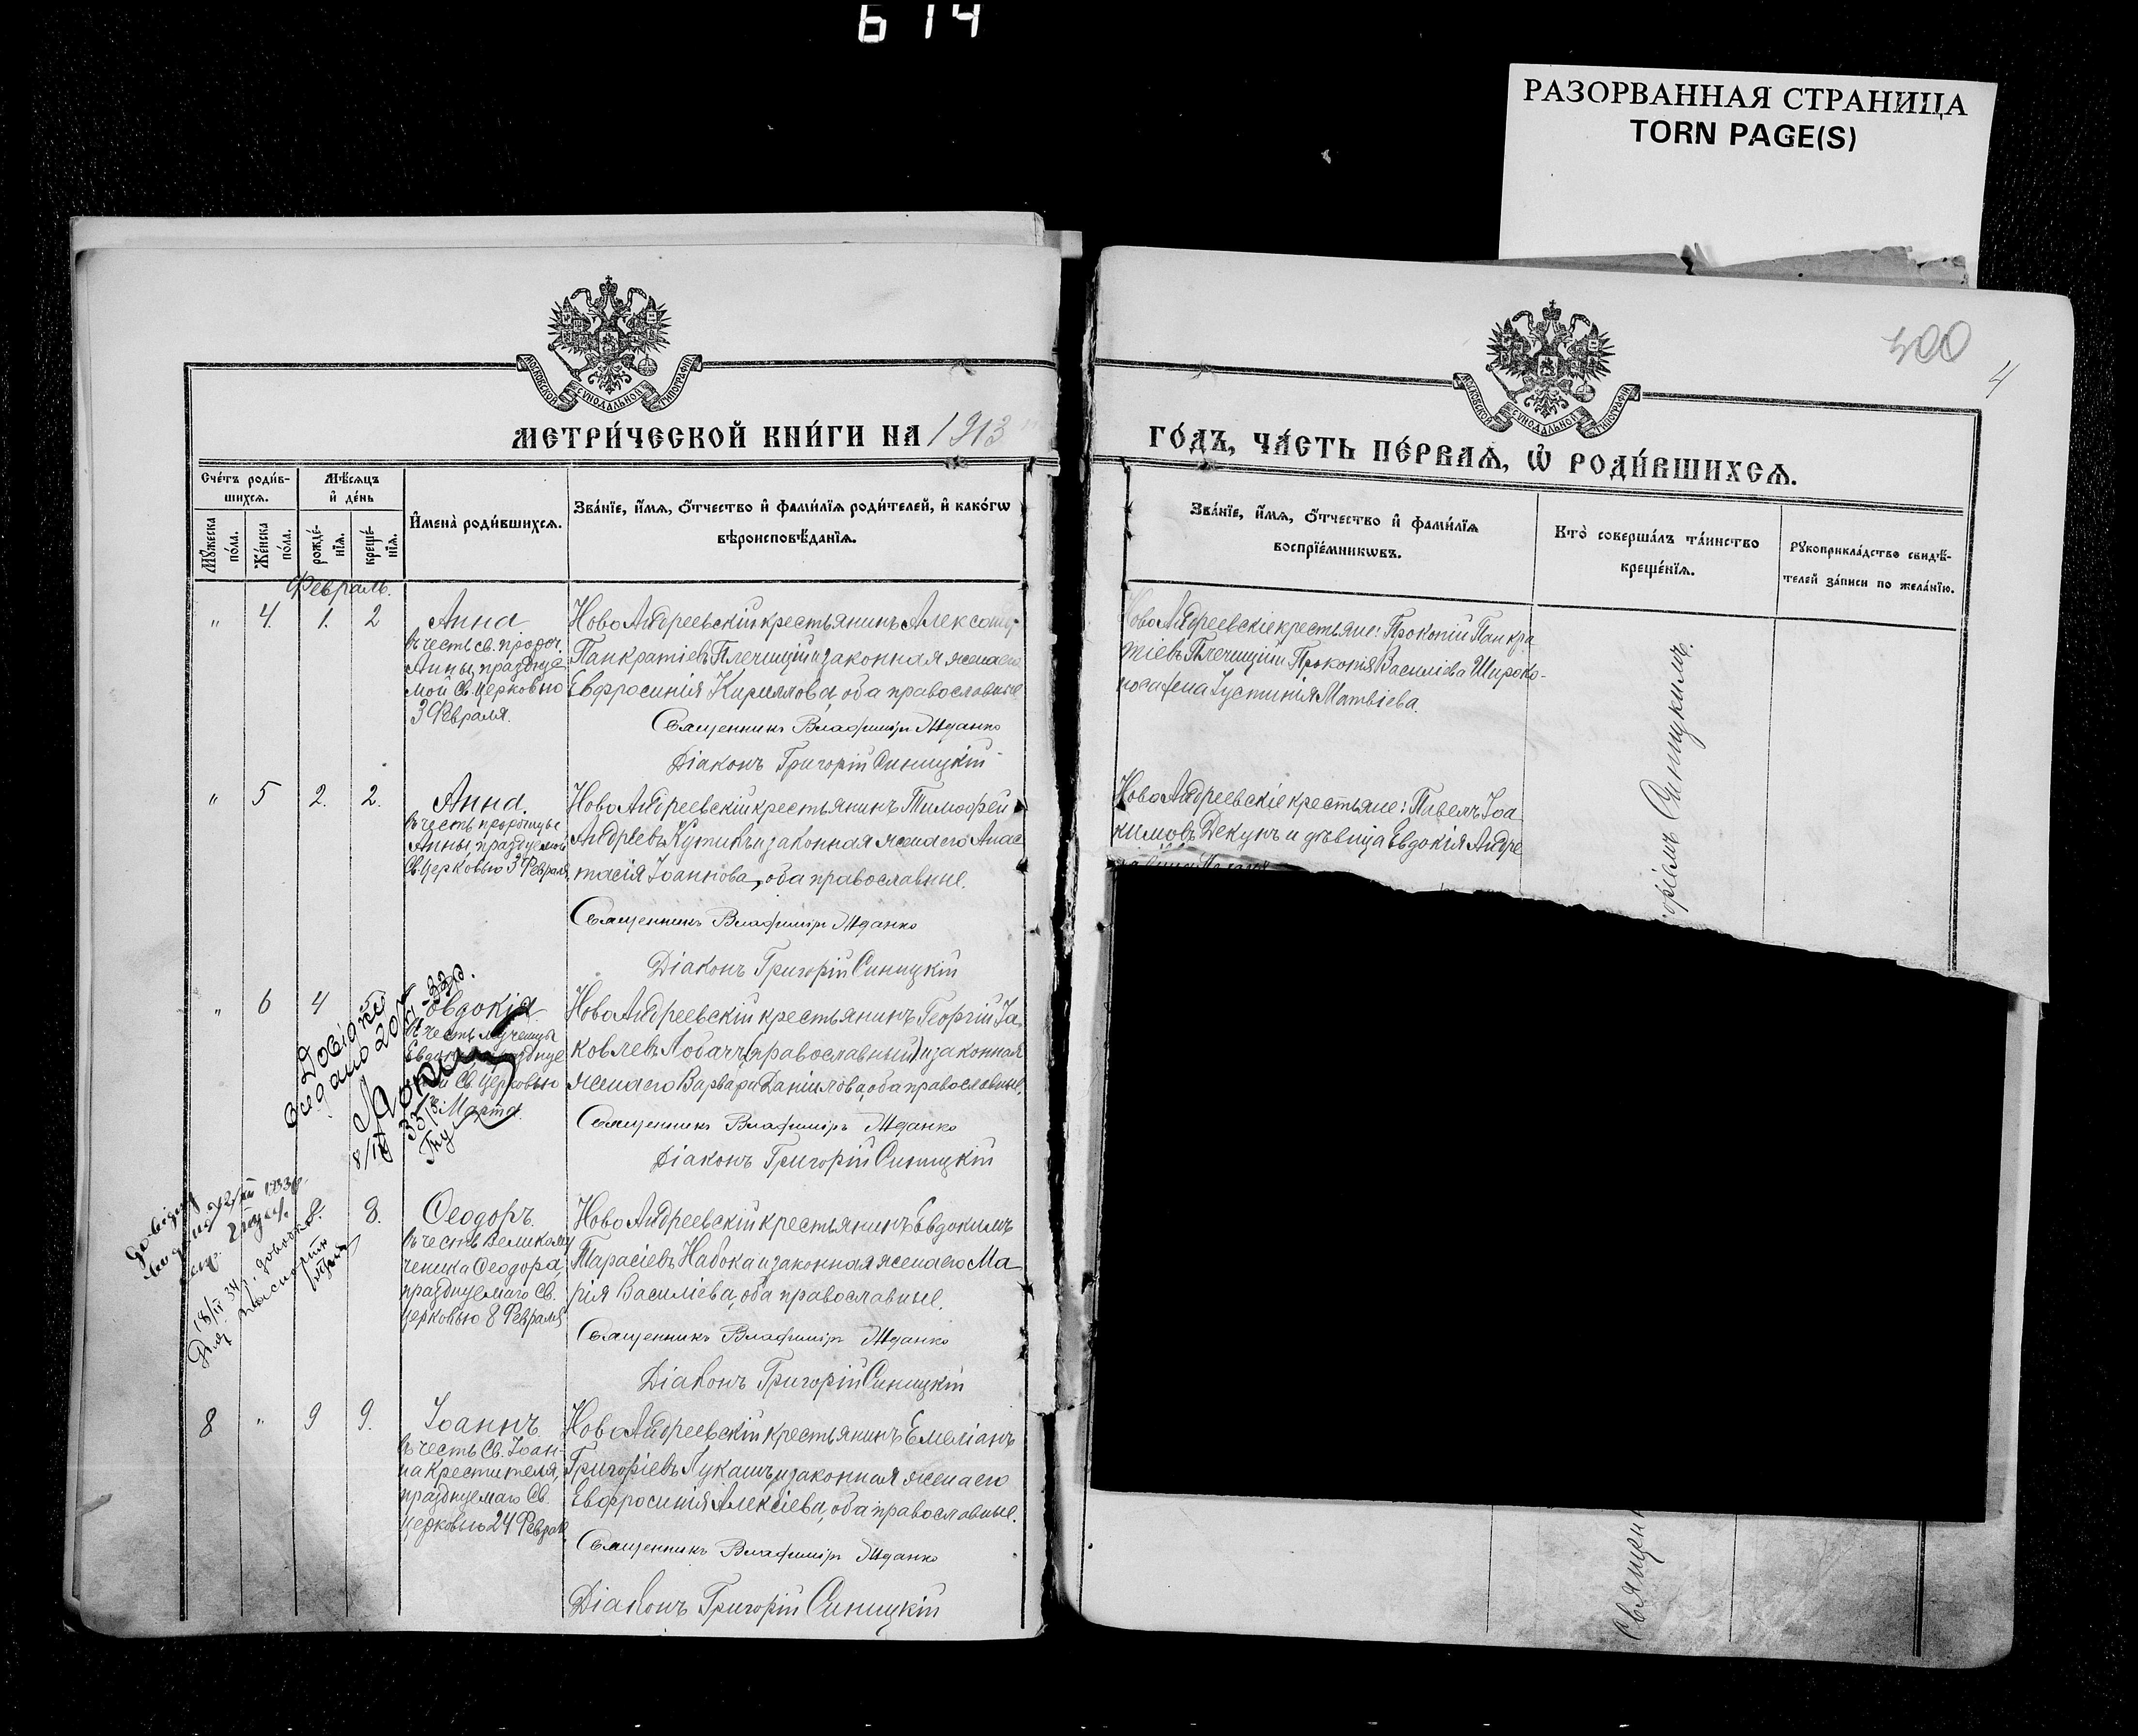 614
РАЗОРВАННАЯ СТРАНИЦА
TORN PAGE(S)
МОСКОВСКОЙ СѴНОДАЛЬНОЙ ТИПОГРАФІИ
МЕТРИ́ЧЕСКОЙ КНИ́ГИ НА 1913
Сче́тъ роди́в-
шихсѧ.
Мѣ́сяцъ
и҆ де́нь
Мꙋ́жеска
по́ла.
Же́нска
по́ла.
рожде́-
нїѧ.
креще́-
нїѧ.
И҆мена̀ роди́вшихсѧ.
Зва́нїе, и҆́мѧ, ѻ҆́тчество и҆ фами́лїѧ роди́телей, и҆ како́гѡ
вѣроисповѣ́данїѧ.
Февраль.
" 4. 1. 2
Анна
въ честь св. пророч.
Анны, праздуе-
мой Св. Церковью
3 Февраля.
НовоАндреевскій крестьянинъ Александръ
Панкратіевъ Плечицій и законная жена его
Евфросинія Кириллова, оба православные
Священникъ Владиміръ Жданко
Діаконъ Григорій Синицкій
" 5 2. 2.
Анна.
въ честь пророчицы
Анны, праздуемой
Св. Церковью 3 Февраля,
НовоАндреевскій крестьянинъ Тимофей
Андреевъ Кутикъ и законная жена его Анас
тасія Іоаннова, оба православные.
Священникъ Владиміръ Жданко
Діаконъ Григорій Синицкій
" 6 4
Евдокія
въ честь мученицы
Св. Церковью
Марта.
Довідку
видано 20/
8/IV 33
НовоАндреевскій крестьянинъ Георгій Іа
ковлевъ Лобачъ (православный) и законная
жена его Варвара Даніилова, оба православные.
Священникъ Владиміръ Жданко
Діаконъ Григорій Синицкій
8. 8.
Ѳеодоръ.
въ честь Великому
ченика Ѳеодора,
празднуемаго Св.
Церковью 8 Февраля
Довідку
18/IV 34 г.
Для паспорту
НовоАндреевскій крестьянинъ Евдокимъ
Тарасіевъ Набока и законная жена его Ма
рія Василіева, оба православные.
Священникъ Владиміръ Жданко
Діаконъ Григорій Синицкій
8 " 9 9.
Іоаннъ
въ честь Св. Іоан-
на Крестителя,
празднуемаго Св.
Церковью 24 Февраля
НовоАндреевскій крестьянинъ Емеліанъ
Григоріевъ Лукашъ и законная жена его
Евфросинія Алексіева, оба православные.
Священникъ Владиміръ Жданко
Діаконъ Григорій Синицкій
400
4
МОСКОВСКОЙ СѴНОДАЛЬНОЙ ТИПОГРАФІИ
ГО́ДЪ, ЧА́СТЬ ПЕ́РВАѦ, Ѽ РОДИ́ВШИХСѦ.
Зва́нїе, и҆́мѧ, ѻ҆́тчество и҆ фами́лїѧ
воспрїе́мникѡвъ.
Кто̀ соверша́лъ та́инство
креще́нїѧ.
Рꙋкоприкла́дство свидѣ́-
телей за́писи по жела́нїю.
НовоАндреевскіе крестьяне: Прокопій Панкра
тіевъ Плечицій и Прокопія Василіева Широко-
нога жена Іустинія Матвіева.
НовоАндреевскіе крестьяне: Павелъ Іоа
кимовъ Декунъ и дѣвица Евдокія Андре
Синицкимъ.
Священ